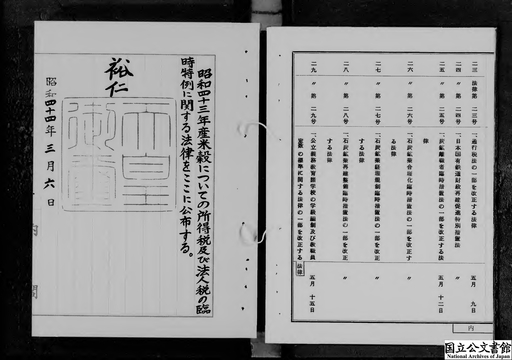 二三 法律第二三号 一、通行税法の一部を改正する法律 五月 九日
二四 〃 第二四号 一、日本国有鉄道財政再建促進特別措置法 〃
二五 〃 第二五号 一、炭鉱離職者臨時措置法の一部を改正する法律 五月 十二日
二六 〃 第二六号 一、石炭鉱業合理化臨時措置法の一部を改正する法律 〃
二七 〃 第二七号 一、石炭鉱業経理規制臨時措置法の一部を改正する法律 〃
二八 〃 第二八号 一、石炭鉱業再建整備臨時措置法の一部を改正する法律 〃
二九 〃 第二九号 一、公立義務教育諸学校の学級編制及び教職員定数の標準に関する法律の一部を改正する法律 五月 十五日
内
昭和四十三年産米穀についての所得税及び法人税の臨
時特例に関する法律をここに公布する。
裕仁
天皇
御璽
昭和四十四年三月六日
国立公文書館
National Archives of Japan